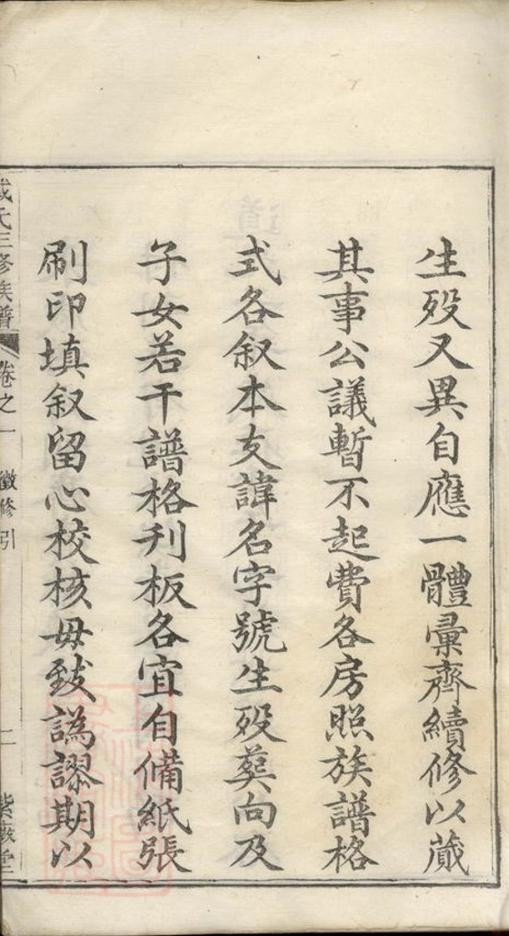 生殁又異自應一體彙齊續修以蕆
其事公議暫不起費各房照族譜格
式各叙本支諱名字號生殁葬向及
子女若干譜格刋板各宜自備紙張
刷印填叙留心校核毋致譌謬期以
氏三修族譜
卷之一
徵修引
二